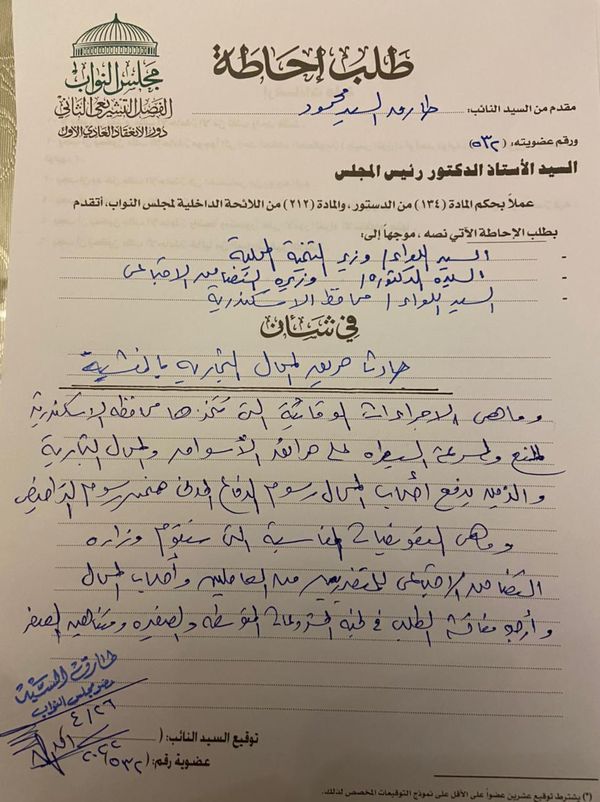 مجلس النواب
الفصل التشريعى الثانى
دور الانعقاد العادى الأول
طلب إحاطة
مقدم من السيد النائب: طارق السيد محمود
ورقم عضويته: (٥٣٢)
السيد الأستاذ الدكتور رئيس المجلس
عملاً بحكم المادة (١٣٤) من الدستور، والمادة (٢١٢) من اللائحة الداخلية لمجلس النواب، أتقدم
بطلب الإحاطة الآتي نصه، موجهاً إلى:
- السيد اللواء/ وزير التنمية المحلية
- السيده الدكتوره/ وزيره التضامن الاجتماعى
- السيد اللواء/ محافظ الاسكندرية
في شأن
حادث حريق المحال التجاريه بالمنشية
وماهى الاجراءات الوقائية التى تتخذها محافظه الاسكندرية
لمنع ولسرعة السيطره على حرائق الأسواق والمحال التجارية
والذين يدفع أصحاب المحال رسوم الدفاع المدنى ضمن رسوم التراخيص
وماهى التعويضات المناسبة التى ستقوم وزاره
التضامن الاجتماعى للمتضررين من العاملين وأصحاب المحال
وأرجو مناقشة الطلب فى لجنة المشروعات المتوسطه والصغيره ومتناهيه الصغر
طارق السيد
عضو مجلس النواب
٤/٢٦
٢٠٢٢
توقيع السيد النائب: (
عضوية رقم: (٥٣٢
(*) يشترط توقيع عشرين عضواً على الأقل على نموذج التوقيعات المخصص لذلك.